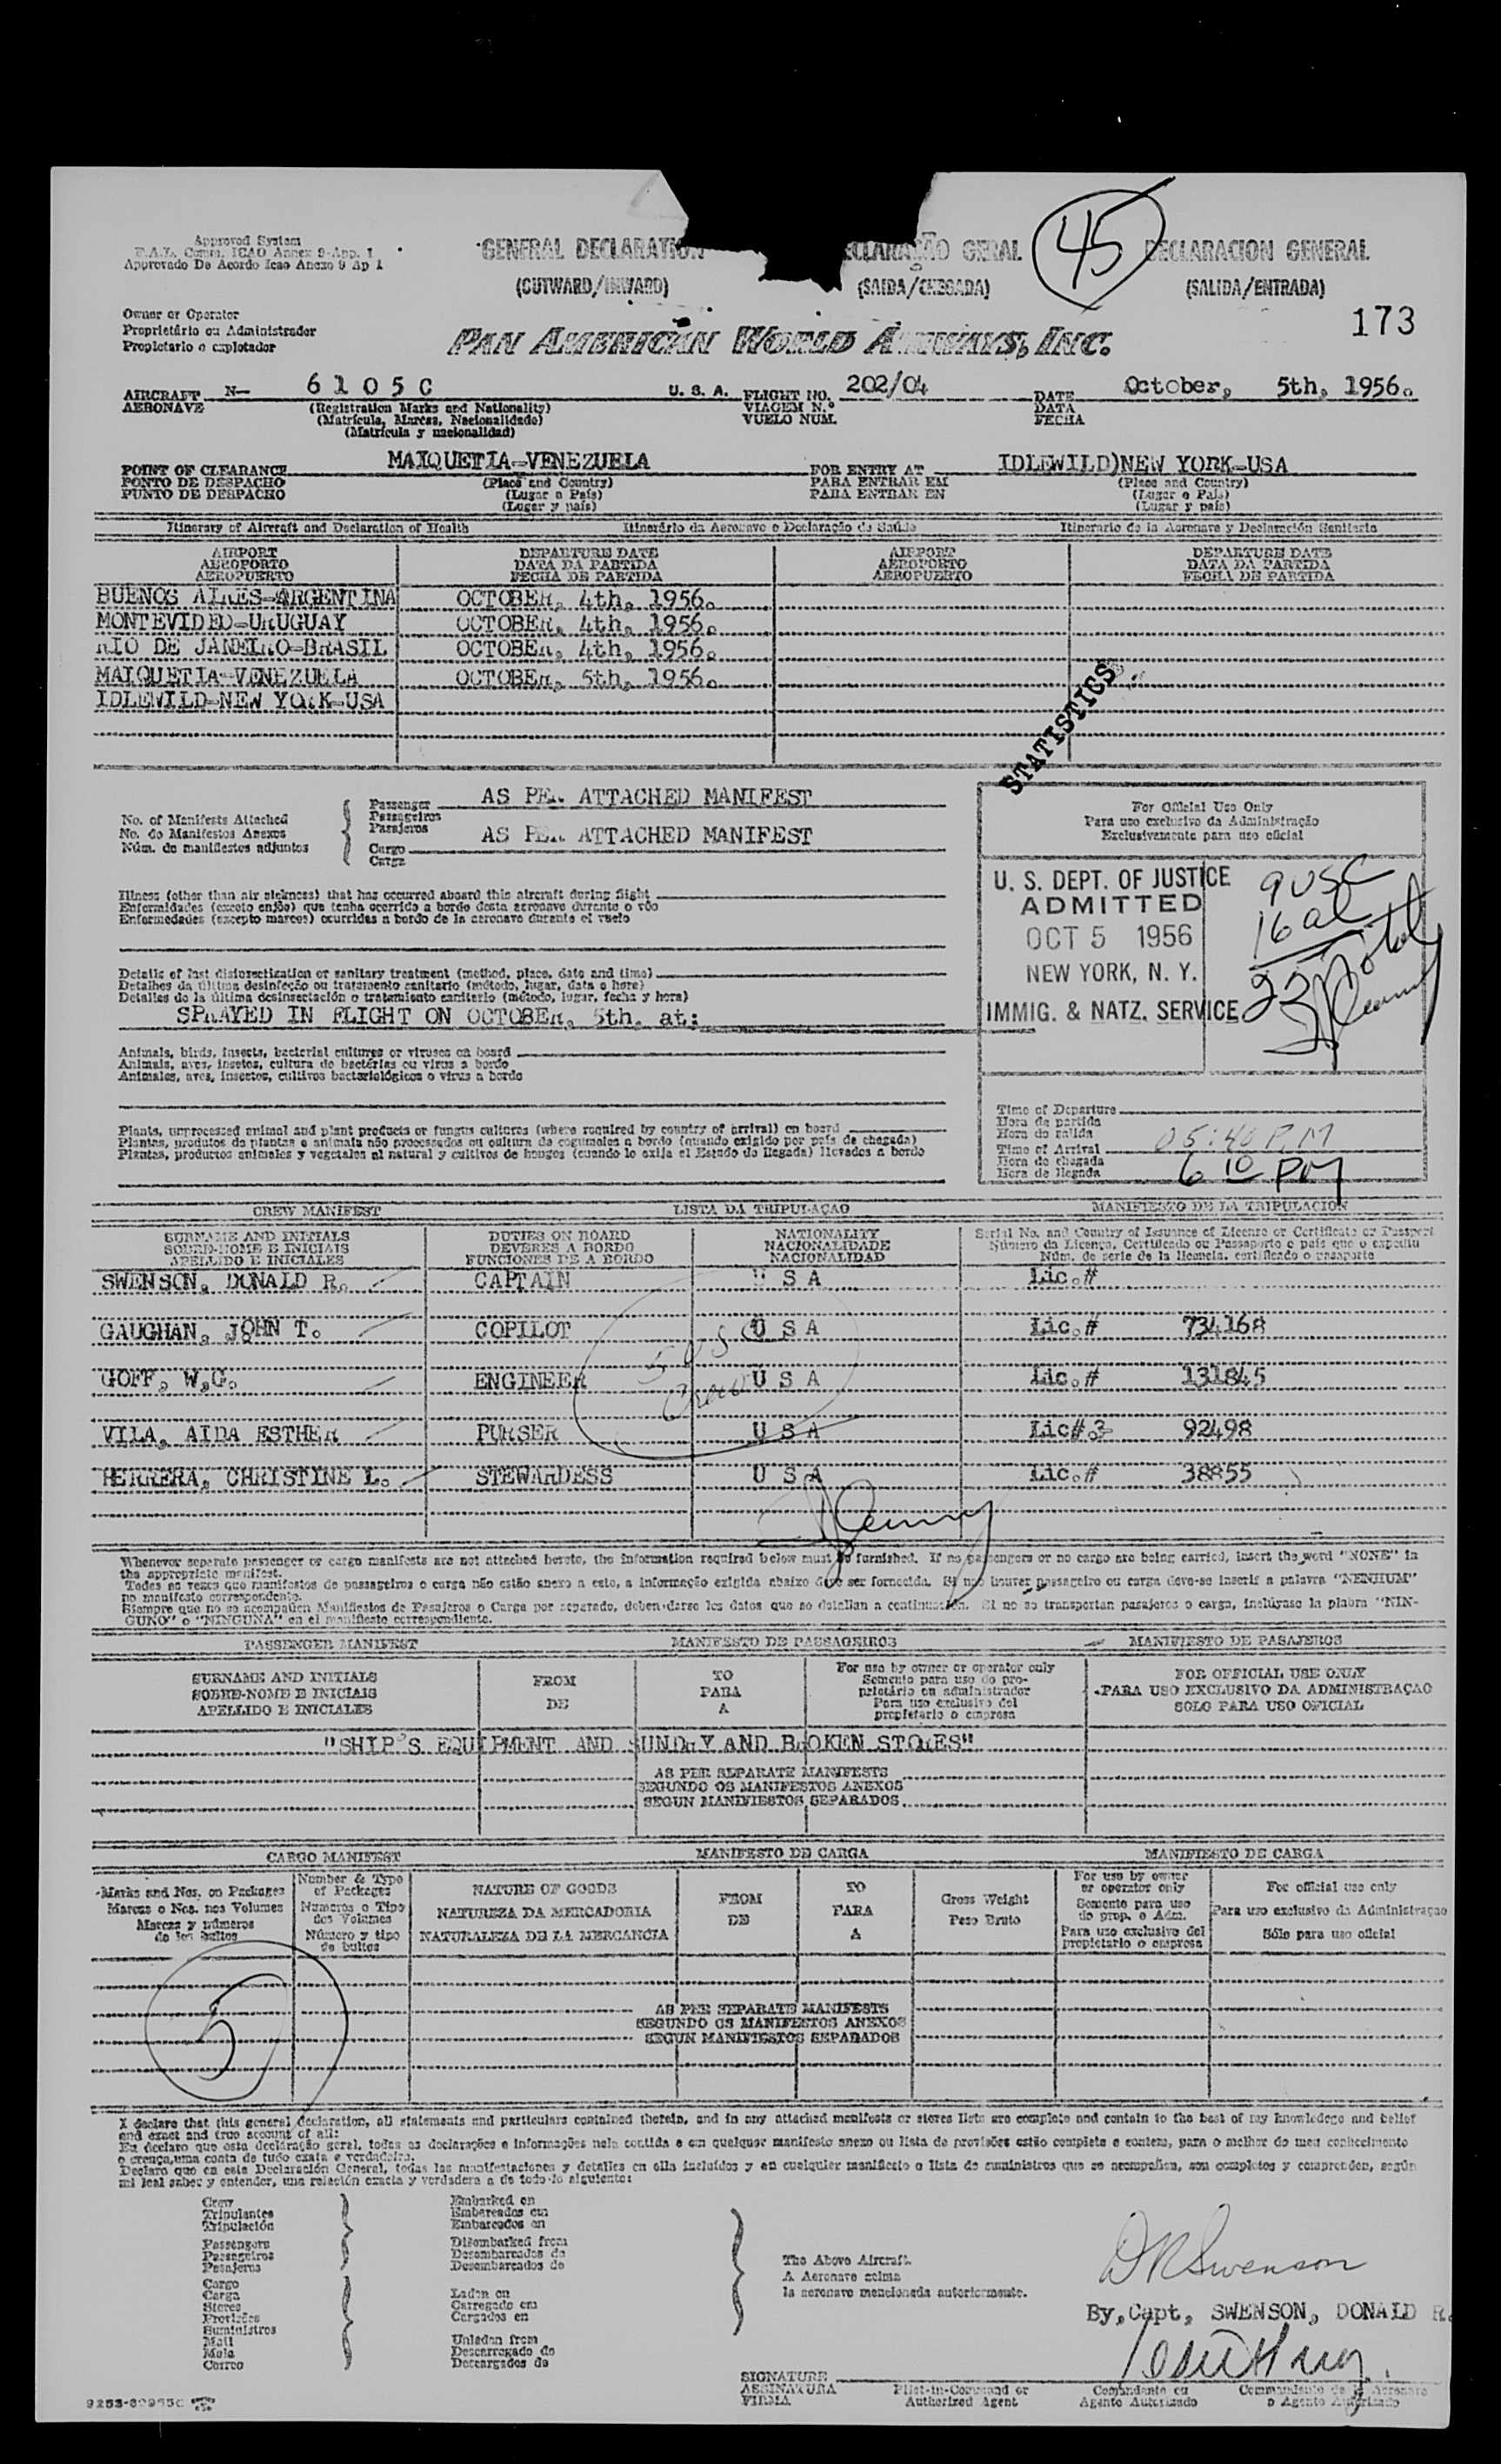 Approved System
F.A.L. Comm. ICAO Annex 9-App. 1
Approvado De Acordo Icao Anexo 9 Ap 1
GENERAL DECLARATION
(OUTWARD/INWARD)
DECLARAÇÃO GERAL
(SAIDA/CHEGADA)
45
DECLARACION GENERAL
(SALIDA/ENTRADA)
173
Owner or Operator
Proprietário ou Administrador
Propietario o explotador
PAN AMERICAN WORLD AIRWAYS, INC.
AIRCRAFT N— 6105C U. S. A. FLIGHT NO. 202/04 DATE October, 5th, 1956.
AERONAVE (Registration Marks and Nationality) VIAGEM N.º DATA
(Matrícula, Marcas, Nacionalidade) VUELO NUM. FECHA
(Matrícula y nacionalidad)
POINT OF CLEARANCE MAIQUETIA-VENEZUELA FOR ENTRY AT IDLEWILD)NEW YORK-USA
PONTO DE DESPACHO (Place and Country) PARA ENTRAR EM (Place and Country)
PUNTO DE DESPACHO (Lugar e País) PARA ENTRAR EN (Lugar e País)
(Lugar y país) (Lugar y país)
Itinerary of Aircraft and Declaration of Health Itinerário da Aeronave e Declaração de Saúde Itinerario de la Aeronave y Declaración Sanitaria
AIRPORT DEPARTURE DATE AIRPORT DEPARTURE DATE
AEROPORTO DATA DA PARTIDA AEROPORTO DATA DA PARTIDA
AEROPUERTO FECHA DE PARTIDA AEROPUERTO FECHA DE PARTIDA
BUENOS AIRES-ARGENTINA OCTOBER, 4th, 1956.
MONTEVIDEO-URUGUAY OCTOBER, 4th, 1956.
RIO DE JANEIRO-BRASIL OCTOBER, 4th, 1956.
MAIQUETIA-VENEZUELA OCTOBER, 5th, 1956.
IDLEWILD-NEW YORK-USA
STATISTICS
No. of Manifests Attached
No. do Manifestos Anexos
Núm. de manifiestos adjuntos
Passenger AS PER ATTACHED MANIFEST
Passageiros
Pasajeros
Cargo AS PER ATTACHED MANIFEST
Carga
For Official Use Only
Para uso exclusivo da Administração
Exclusivamente para uso oficial
U. S. DEPT. OF JUSTICE
ADMITTED
OCT 5 1956
NEW YORK, N. Y.
IMMIG. & NATZ. SERVICE
9 USC
16 al
Total
Illness (other than air sickness) that has occurred aboard this aircraft during flight
Enfermidades (exceto enjôo) que tenha ocorrido a bordo desta aeronave durante o vôo
Enfermedades (excepto mareos) ocurridas a bordo de la aeronave durante el vuelo
Details of last disinsectization or sanitary treatment (method, place, date and time)
Detalhes da última desinfeção ou tratamento sanitario (método, lugar, data e hora)
Detalles de la última desinsectación o tratamiento sanitario (método, lugar, fecha y hora)
SPRAYED IN FLIGHT ON OCTOBER, 5th, at:
Animals, birds, insects, bacterial cultures or viruses on board
Animais, aves, insetos, cultura de bactérias ou virus a bordo
Animales, aves, insectos, cultivos bacteriológicos o virus a bordo
Plants, unprocessed animal and plant products or fungus cultures (where required by country of arrival) on board
Plantas, produtos de plantas e animais não processados ou cultura de cogumelos a bordo (quando exigido por país de chegada)
Plantas, productos animales y vegetales al natural y cultivos de hongos (cuando lo exija el Estado de llegada) llevados a bordo
Time of Departure
Hora de partida
Hora de salida 05:40 P.M
Time of Arrival
Hora de chegada
Hora de llegada 6 10 PM
CREW MANIFEST LISTA DA TRIPULAÇAO MANIFIESTO DE LA TRIPULACION
SURNAME AND INITIALS DUTIES ON BOARD NATIONALITY Serial No. and Country of Issuance of License or Certificate or Passport
SOBRE-NOME E INICIAIS DEVERES A BORDO NACIONALIDADE Número da Licença, Certificado ou Passaporte e país que o expediu
APELLIDO E INICIALES FUNCIONES DE A BORDO NACIONALIDAD Núm. de serie de la licencia, certificado o pasaporte
SWENSON, DONALD R. CAPTAIN U S A Lic.#
GAUGHAN, JOHN T. COPILOT U S A Lic.# 734168
GOFF, W.G. ENGINEER U S A Lic.# 131845
5 USC
Crew
VILA, AIDA ESTHER PURSER U S A Lic#.3 92498
HERRERA, CHRISTINE L. STEWARDESS U S A Lic.# 38855
Whenever separate passenger or cargo manifests are not attached hereto, the information required below must be furnished. If no passengers or no cargo are being carried, insert the word "NONE" in
the appropriate manifest.
Todas as vezes que manifestos de passageiros e carga não estão anexo a este, a informação exigida abaixo deve ser fornecida. Si não houver passageiro ou carga deve-se inserir a palavra "NENHUM"
no manifesto correspondente.
Siempre que no se acompañen Manifiestos de Pasajeros o Carga por separado, deben darse los datos que se detallan a continuación. Si no se transportan pasajeros o carga, inclúyase la plabra "NIN-
GUNO" o "NINGUNA" en el manifiesto correspondiente.
PASSENGER MANIFEST MANIFESTO DE PASSAGEIROS MANIFIESTO DE PASAJEROS
SURNAME AND INITIALS
SOBRE-NOME E INICIAIS
APELLIDO E INICIALES
FROM
DE
TO
PARA
A
For use by owner or operator only
Somente para uso do pro-
prietário ou administrador
Para uso exclusivo del
propietario o empresa
FOR OFFICIAL USE ONLY
PARA USO EXCLUSIVO DA ADMINISTRAÇAO
SOLO PARA USO OFICIAL
"SHIP'S EQUIPMENT AND SUNDRY AND BROKEN STORES"
AS PER SEPARATE MANIFESTS
SEGUNDO OS MANIFESTOS ANEXOS
SEGUN MANIFIESTOS SEPARADOS
CARGO MANIFEST MANIFESTO DE CARGA MANIFIESTO DE CARGA
Marks and Nos. on Packages
Marcas o Nos. nos Volumes
Marcas y números
de los bultos
Number & Type
of Packages
Numeros o Tipo
dos Volumes
Número y tipo
de bultos
NATURE OF GOODS
NATUREZA DA MERCADORIA
NATURALEZA DE LA MERCANCIA
FROM
DE
TO
PARA
A
Gross Weight
Peso Bruto
For use by owner
or operator only
Somente para uso
do prop. e Adm.
Para uso exclusivo del
propietario o empresa
For official use only
Para uso exclusivo da Administraçao
Sólo para uso oficial
5
AS PER SEPARATE MANIFESTS
SEGUNDO OS MANIFESTOS ANEXOS
SEGUN MANIFIESTOS SEPARADOS
I declare that this general declaration, all statements and particulars contained therein, and in any attached manifests or stores lists are complete and contain to the best of my knowledge and belief
and exact and true account of all:
Eu declaro que esta declaração geral, todas as declarações e informações nela contida e em qualquer manifesto anexo ou lista de provisões estão completo e contem, para o melhor do meu conhecimento
e crença,uma conta de tudo exata e verdadeira.
Declaro que en esta Declaración General, todas las manifestaciones y detalles en ella incluidos y en cualquier manifiesto o lista de suministros que se acompañen, son completos y comprenden, según
mi leal saber y entender, una relación exacta y verdadera a de todo lo siguiente:
Crew
Tripulantes
Tripulación
Passengers
Passageiros
Pasajeros
Cargo
Carga
Stores
Provisões
Suministros
Mail
Mala
Correo
Embarked on
Embarcados em
Embarcados en
Disembarked from
Desembarcados da
Desembarcados de
Laden on
Carregado em
Cargados en
Unladen from
Descarregado do
Descargados de
The Above Aircraft.
A Aeronave acima
la aeronave mencionada anteriormente.
DR Swenson
By,Capt, SWENSON, DONALD R.
SIGNATURE
ASSINATURA
FIRMA
Pilot-in-Command or
Authorized Agent
Comandante ou
Agente Autorizado
Commandante de la Aeronave
o Agente Autorizado